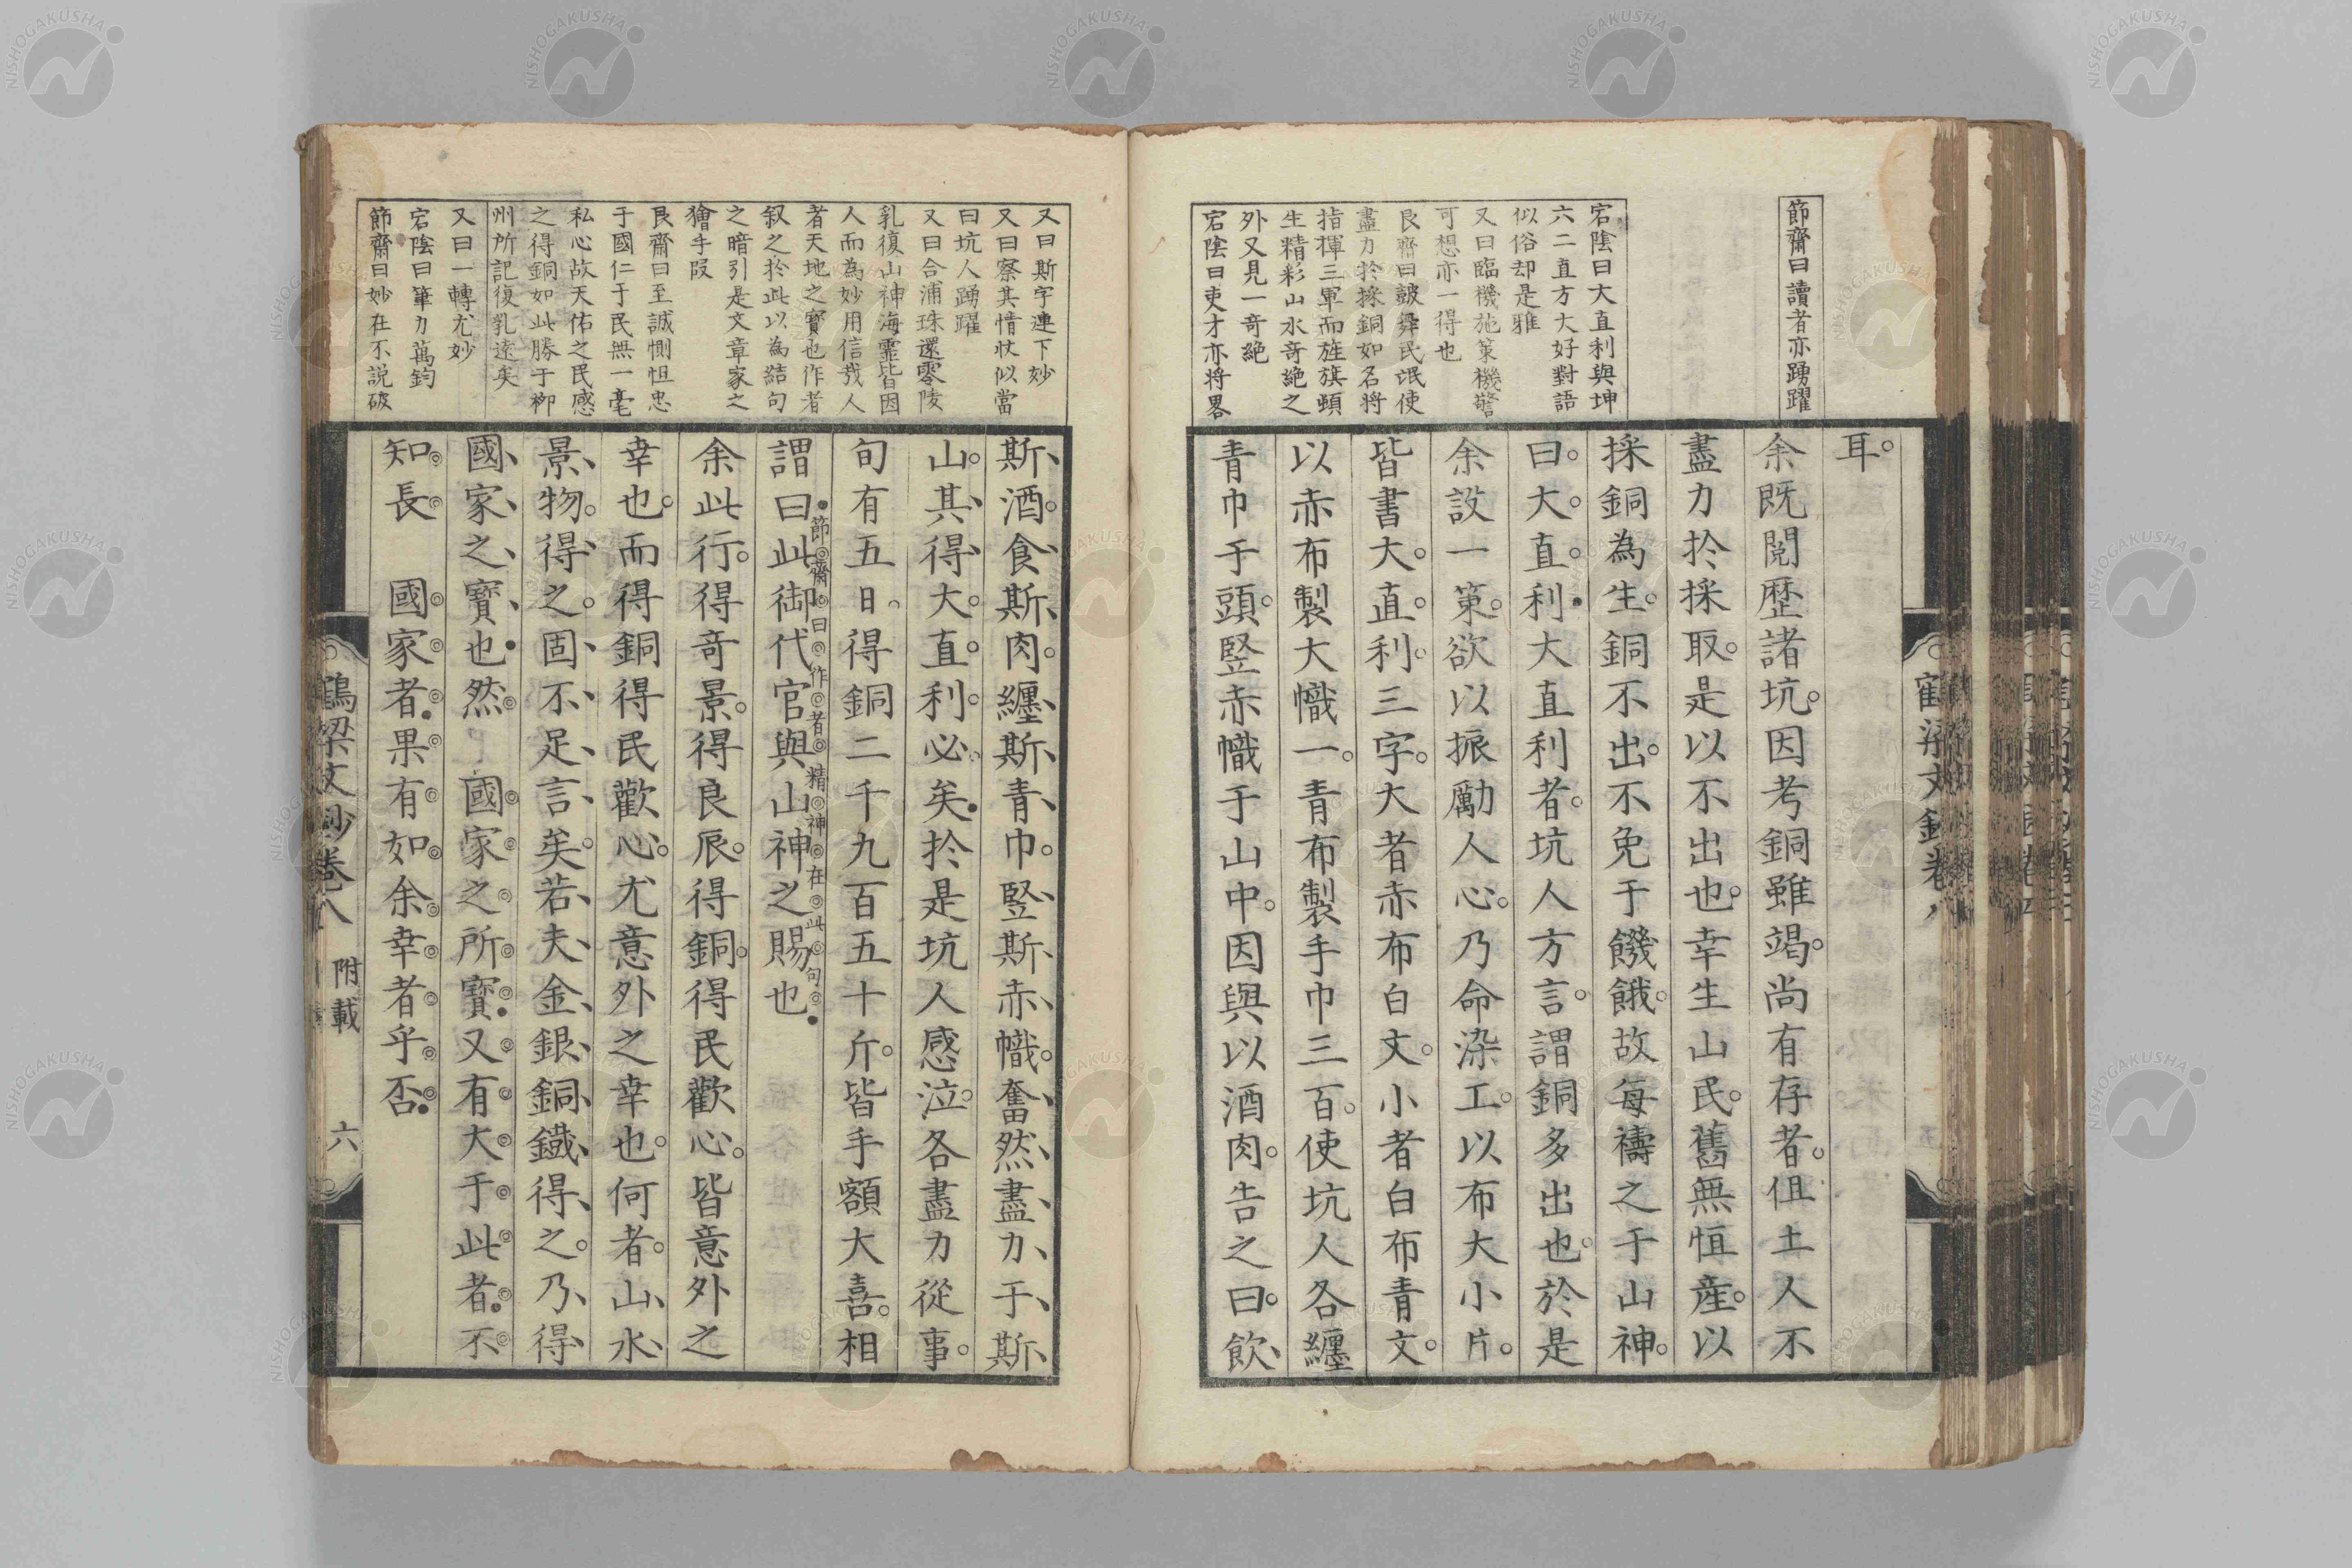 節齋曰讀者亦踴躍
宕陰曰大直利與坤
六二直方大好對語
似俗却是雅
又曰臨機施策機警
可想亦一得也
艮齋曰鼓舞民氓使
盡力於採銅如名將
指揮三軍而旌旗頓
生精彩山水奇絶之
外又見一奇絶
宕陰曰吏才亦將畧
耳。
余既閲歷諸坑。因考銅雖竭。尚有存者。但土人不
盡力於採取。是以不出也。幸生山民。舊無恒産。以
採銅為生。銅不出。不免于饑餓。故每禱之于山神。
曰。大直利。大直利者。坑人方言。謂銅多出也。於是
余設一策。欲以振勵人心。乃命染工。以布大小片。
皆書大直利三字。大者赤布白文。小者白布青文。
以赤布製大幟一。青布製手巾三百。使坑人各纏
青巾于頭。竪赤幟于山中。因與以酒肉。告之曰。飲
鶴梁文鈔卷八
又曰斯字連下妙
又曰察其情状似當
曰坑人踴躍
又曰合浦珠還零陵
乳復山神海霊皆因
人而為妙用信哉人
者天地之寶也作者
叙之於此以為結句
之暗引是文章家之
獪手段
艮齋曰至誠惻怛忠
于國仁于民無一毫
私心故天佑之民感
之得銅如此勝于柳
州所記復乳遠矣
又曰一轉尤妙
宕陰曰筆力萬鈞
節齋曰妙在不説破
斯酒。食斯肉。纏斯青巾。竪斯赤幟。奮然盡力于斯
山。其得大直利必矣。於是坑人感泣。各盡力從事。
旬有五日。得銅二千九百五十斤。皆手額大喜。相
謂曰此御代官與山神之賜也。
節齋曰作者精神在此句
余此行。得奇景。得良辰。得銅。得民歡心。皆意外之
幸也。而得銅得民歡心。尤意外之幸也。何者。山水
景物。得之。固不足言矣。若夫金銀銅鐵得之。乃得
國家之寶也。然　國家之所寶。又有大于此者。不
知長　國家者。果有如余幸者乎否。
鶴梁文鈔卷八　附載　六